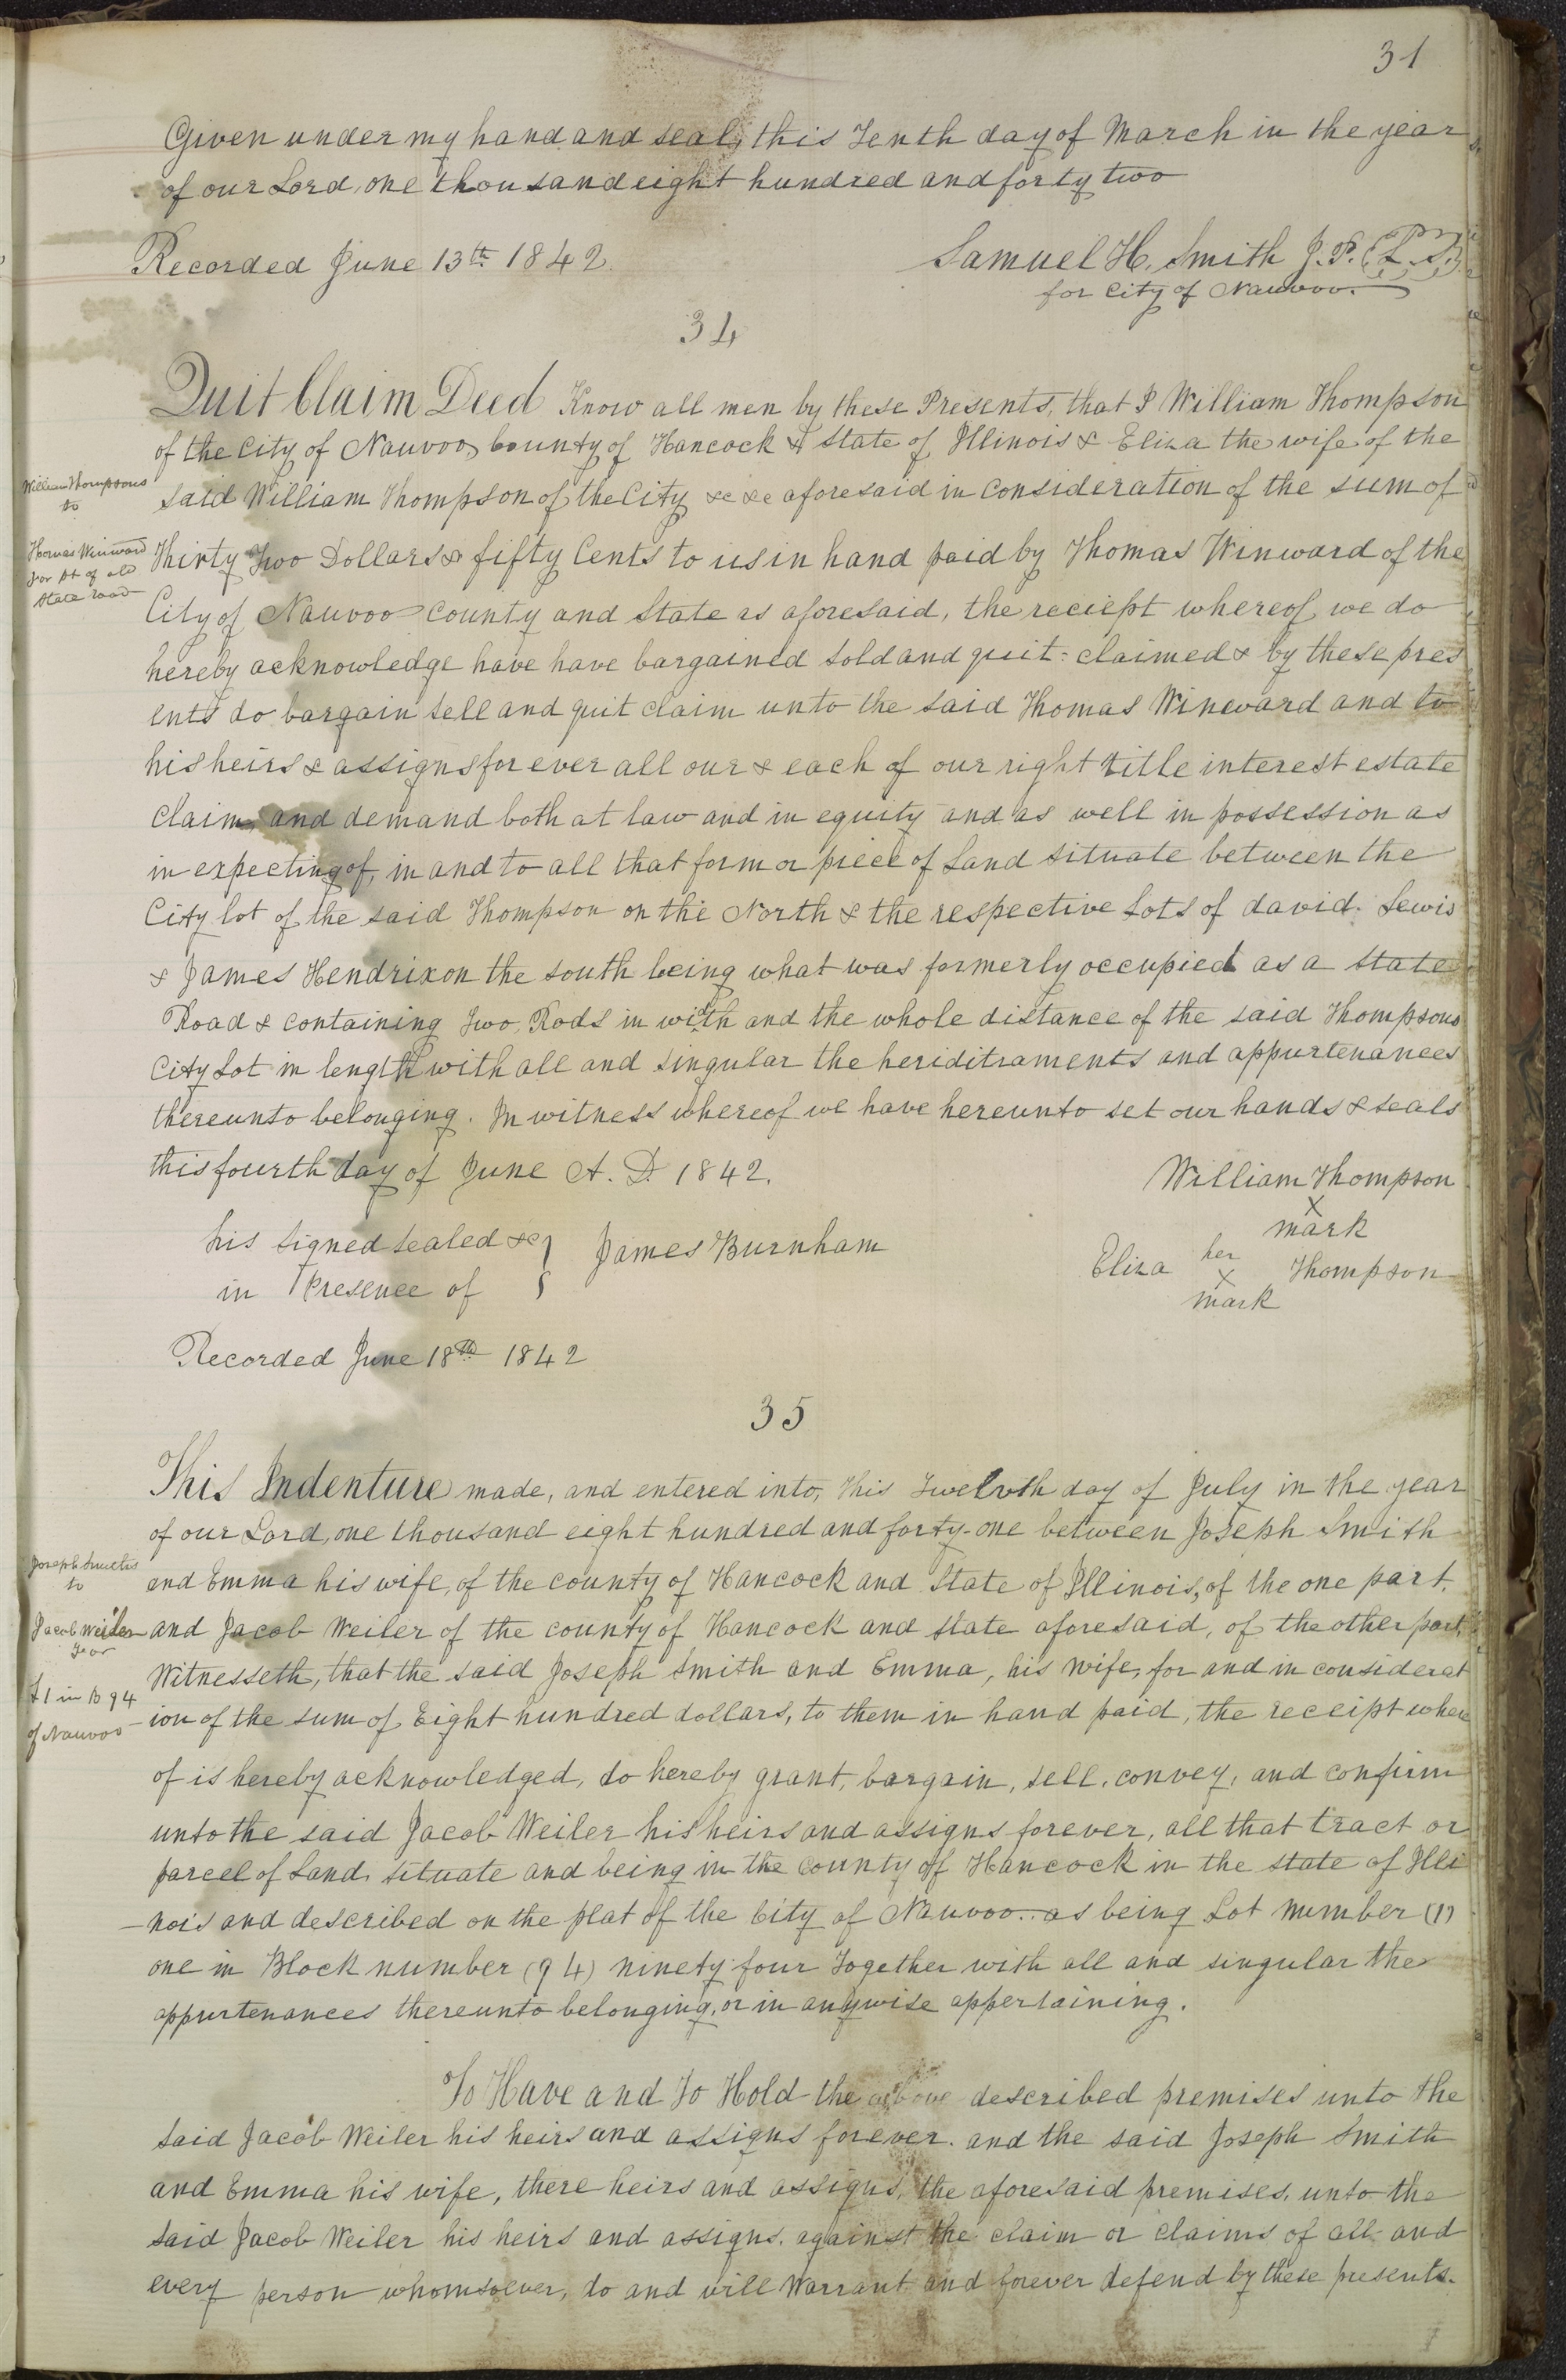 31
Given under my hand and seal, this Tenth day of March in the year
of our Lord, one thousand eight hundred and forty two
Recorded June 13th 1842.
Samuel H. Smith J. P. (L. S.)
for City of Nauvoo.
34
Quit Claim Deed Know all men by these Presents, that I William Thompson
of the City of Nauvoo, County of Hancock & State of Illinois & Eliza the wife of the
William Thompsons
to
Thomas Winward
for pt of old
State road
said William Thompson of the City &c &c aforesaid in consideration of the sum of
Thirty Two Dollars & fifty Cents to us in hand paid by Thomas Winward of the
City of Nauvoo County and State as aforesaid, the reciept whereof we do
hereby acknowledge have have bargained sold and quit-claimed & by these pres
ents do bargain sell and quit claim unto the said Thomas Winward and to
his heirs & assigns for ever all our & each of our right title interest estate
claim, and demand both at law and in equity and as well in possession as
in expecting of, in and to all that form or piece of Land situate between the
City lot of the said Thompson on the North & the respective Lots of david. Lewis
& James Hendrix on the south being what was formerly occupied as a State
Road & containing Two Rods in width and the whole distance of the said Thompsons
City Lot in length with all and singular the heriditraments and appurtenances
thereunto belonging. In witness whereof we have hereunto set our hands & seals
this fourth day of June A. D. 1842.
William Thompson
X
mark
his signed sealed &c
in Presence of
James Burnham
Eliza her Thompson
X
mark
Recorded June 18th 1842
35
This Indenture made, and entered into, this Twelvth day of July in the year
of our Lord, one thousand eight hundred and forty-one between Joseph Smith
Joseph Smiths
to
Jacob Weiler
for
L 1 in B 94
of Nauvoo
and Emma his wife, of the county of Hancock and State of Illinois, of the one part,
and Jacob Weiler of the county of Hancock and state aforesaid, of the other part,
Witnesseth, that the said Joseph Smith and Emma, his wife, for and in considerat
ion of the sum of Eight hundred dollars, to them in hand paid, the receipt where
of is hereby acknowledged, do hereby grant, bargain, sell, convey, and confirm
unto the said Jacob Weiler his heirs and assigns forever, all that tract or
parcel of Land, situate and being in the county of Hancock in the state of Illi
-nois and described on the plat of the City of Nauvoo.. as being Lot number (1)
one in Block number (94) ninety four Together with all and singular the
appurtenances thereunto belonging, or in anywise appertaining.
To Have and To Hold the above described premises unto the
said Jacob Weiler his heirs and assigns forever. and the said Joseph Smith
and Emma his wife, there heirs and assigns, the aforesaid premises, unto the
said Jacob Weiler his heirs and assigns, against the claim or claims of all and
every person whomsoever, do and will Warrant and forever defend by these presents.